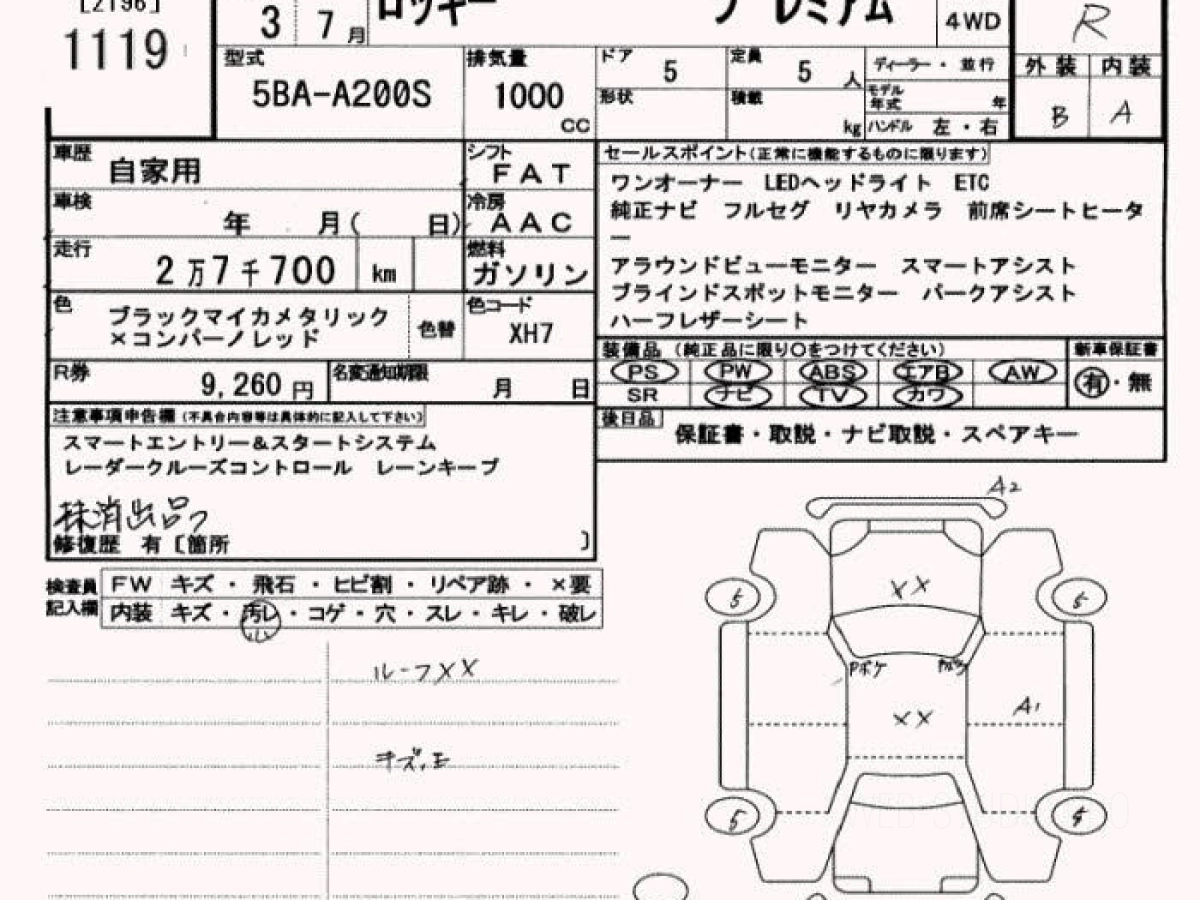 [2196]
1119
3 7 月
ロッキー プレミアム
4WD
R
型式
5BA-A200S
排気量
1000
CC
ドア
5
定員
5 人
ディーラー ・ 並行
外装 内装
形状
積載
kg
モデル年式 年
ハンドル 左 ・ 右
B A
車歴
自家用
シフト
FAT
車検
年 月( 日)
冷房
AAC
走行
2万7千700 km
燃料
ガソリン
色
ブラックマイカメタリック
×コンパーノレッド
色替
色コード
XH7
R券
9,260 円
名変通知期限
月 日
セールスポイント(正常に機能するものに限ります)
ワンオーナー LEDヘッドライト ETC
純正ナビ フルセグ リヤカメラ 前席シートヒータ
ー
アラウンドビューモニター スマートアシスト
ブラインドスポットモニター パークアシスト
ハーフレザーシート
装備品 (純正品に限り○をつけてください)
新車保証書
PS PW ABS エアB AW
有・無
SR ナビ TV カワ
後日品
保証書・取説・ナビ取説・スペアキー
注意事項申告欄(不具合内容等は具体的に記入して下さい)
スマートエントリー&スタートシステム
レーダークルーズコントロール レーンキープ
抹消出品
修復歴 有〔箇所 〕
検査員 FW キズ ・ 飛石 ・ ヒビ割 ・ リペア跡 ・ ×要
記入欄 内装 キズ ・ 汚レ ・ コゲ ・ 穴 ・ スレ ・ キレ ・ 破レ
小
ルーフXX
キズ
A2
XX
5 5
Pボケ
XX
A1
5